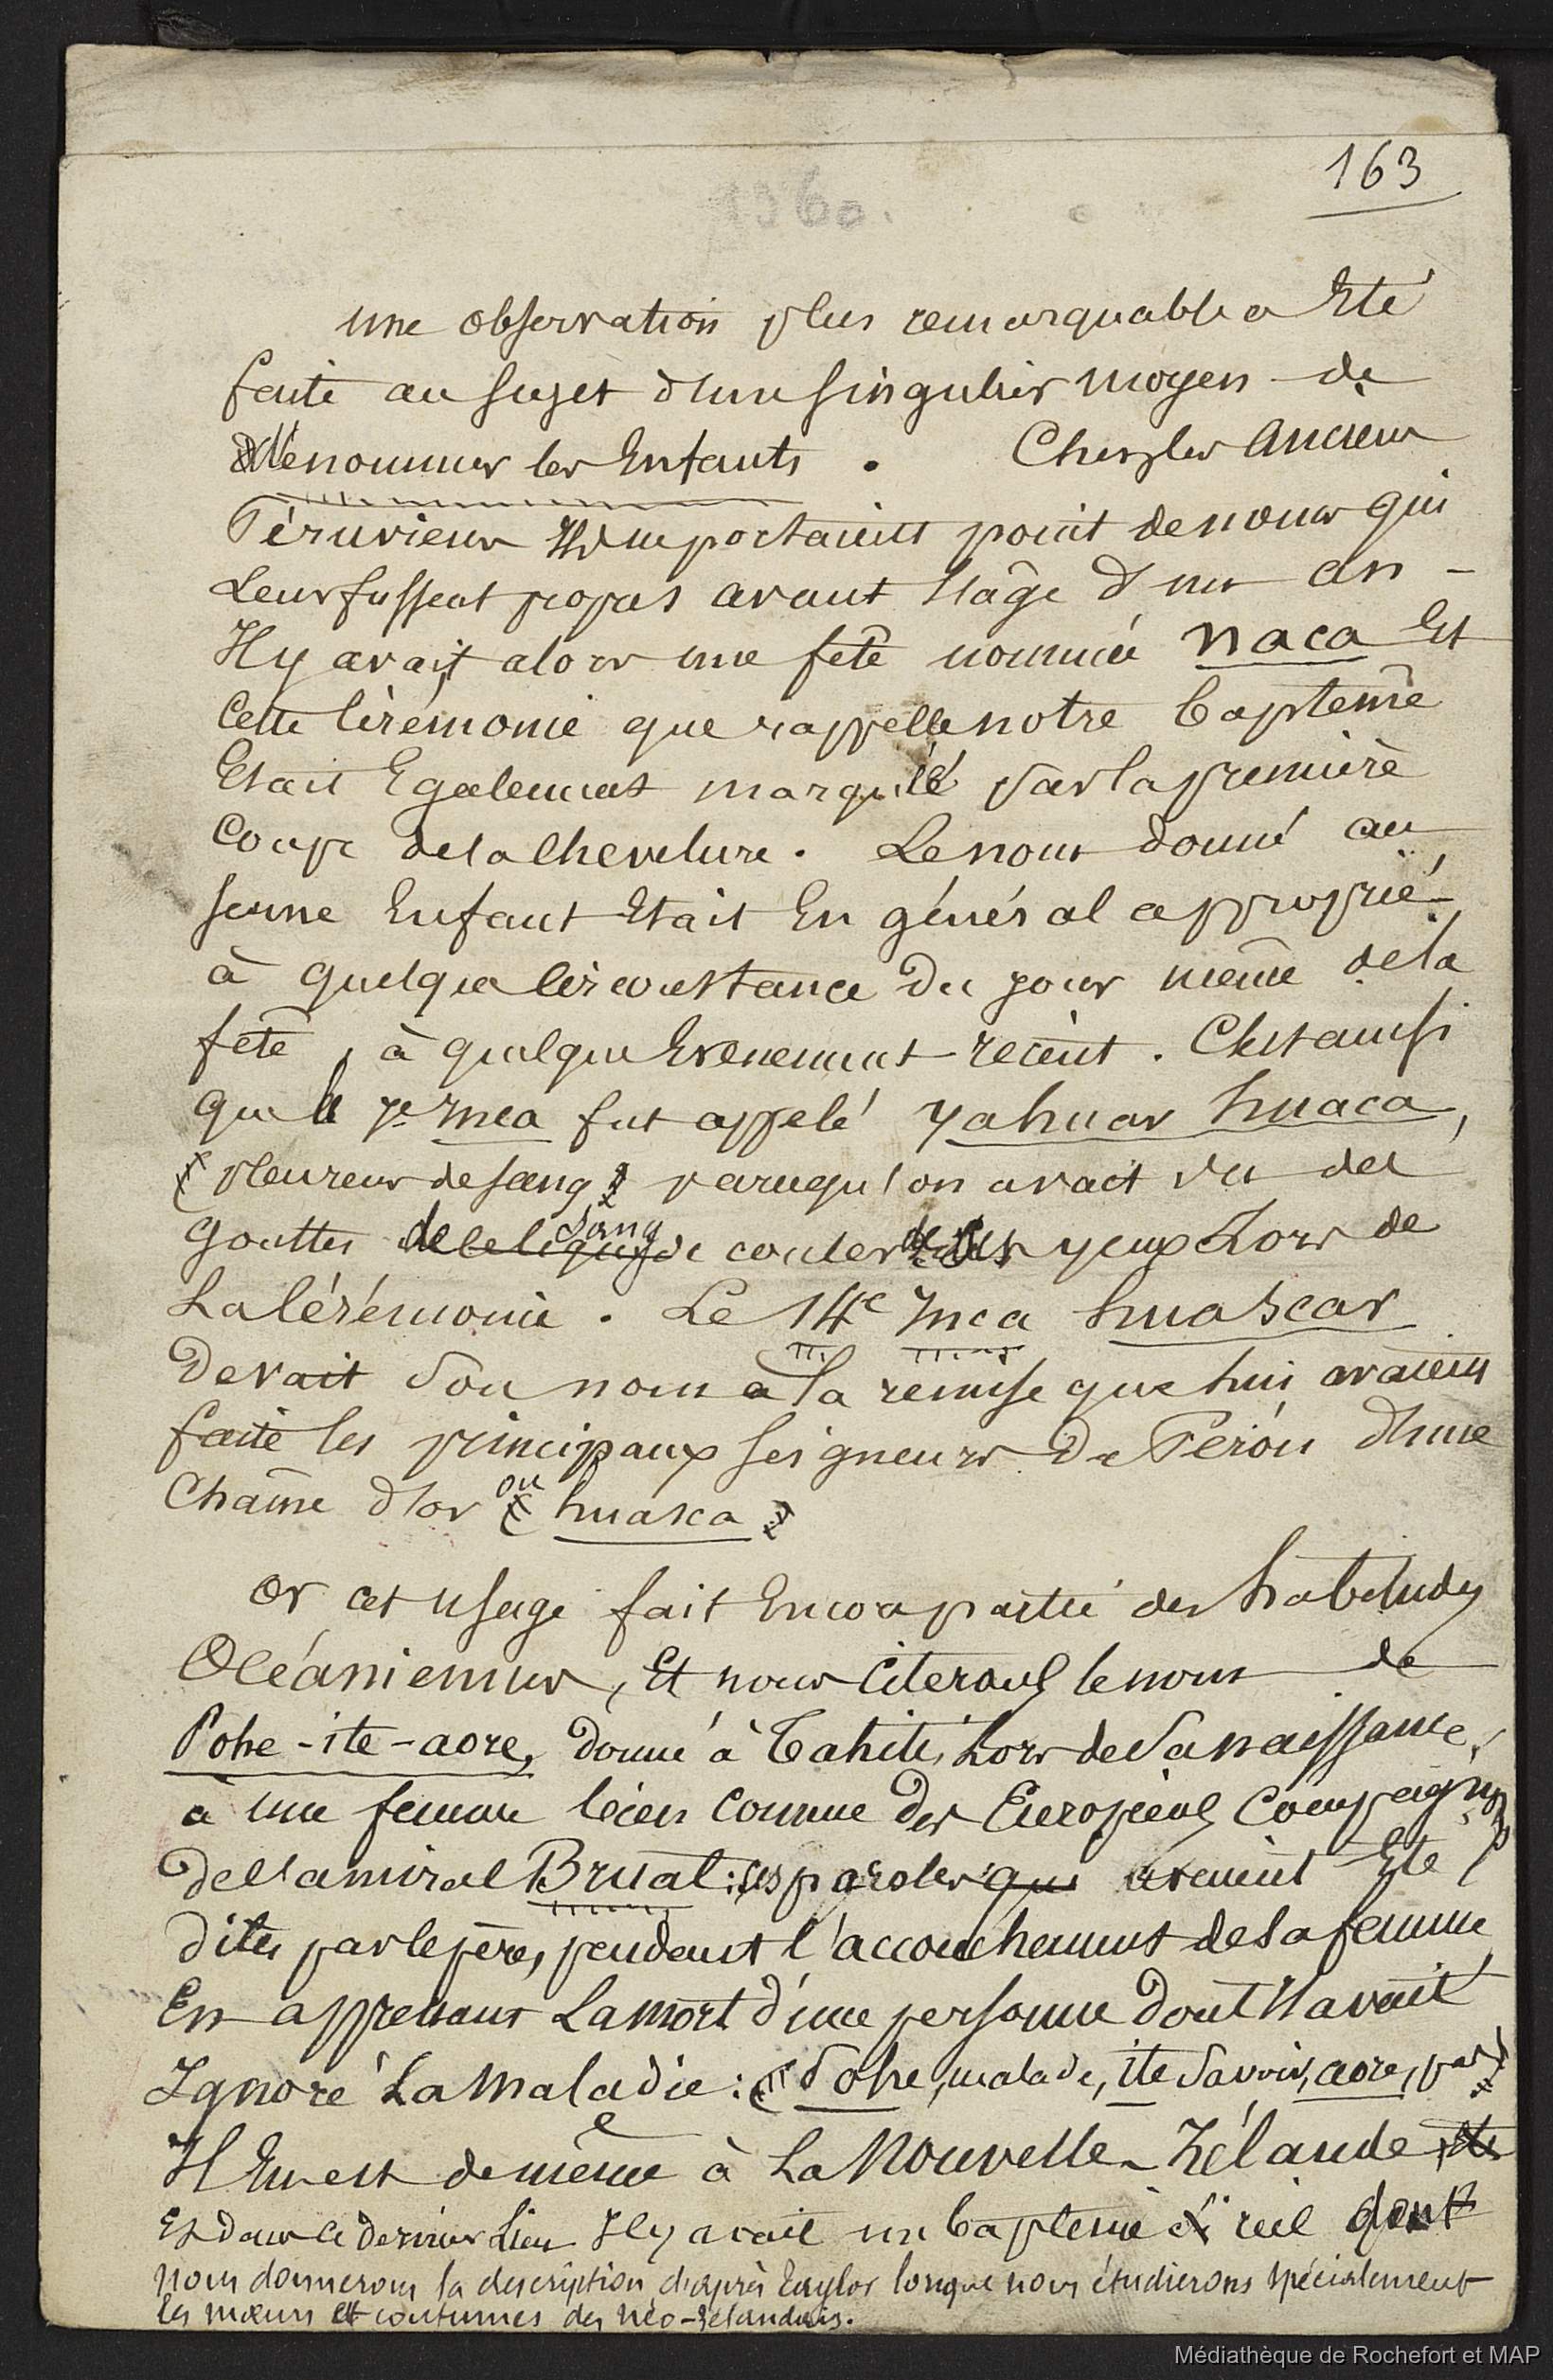 163
1360.
une observation plus remarquable a Eté
faite au sujet d'un singulier moyen de
dénommer les Enfants. Chez les anciens
Péruviens Ils ne portaient point de noms qui
Leur fussent propres avant l'âge d'un an -
Il y avait alors une fête nommée naca Et
Cette Cérémonie que rappelle notre baptême
Etait Egalement marquée par la première
Coupe de la Chevelure. Le nom donné au
jeune Enfant Etait En général approprié
à quelque circonstance du jour même de la
fête, à quelque Evenement récent. C'est ainsi
que le 7e Inca fut appelé yahuar huaca,
(pleureur de sang) parcequ'on avait vu des
Gouttes de ce liquide sang couler de ses yeux Lors de
La Cérémonie. Le 14e Inca huascar
Devait Son nom à la remise que lui avaient
faite les principaux Seigneurs du Pérou d'une
Chaîne d'or ou (huasca)
Or cet usage fait Encore partie des habitudes
Océaniennes, Et nous Citerons le nom de
Pohe-ite-aore, donné à Tahiti, Lors de Sa naissance,
à une femme bien connue des Européens Compagnons
De l'amiral Bruat: ces paroles qui avaient Eté
dites par le père, pendant l'accouchement de sa femme
En apprenant La mort d'une personne dont Il avait
Ignoré La Maladie: (Pohe, malade, ite Savoir, aore, pas)
Il En est de même à La Nouvelle-Zélande
Et dans ce dernier Lieu Il y avait un baptême réel dont
nous donnerons la description d'après Taylor lorsque nous étudierons spécialement
les mœurs et coutumes des Néo-Zélandais.
Médiathèque de Rochefort et MAP